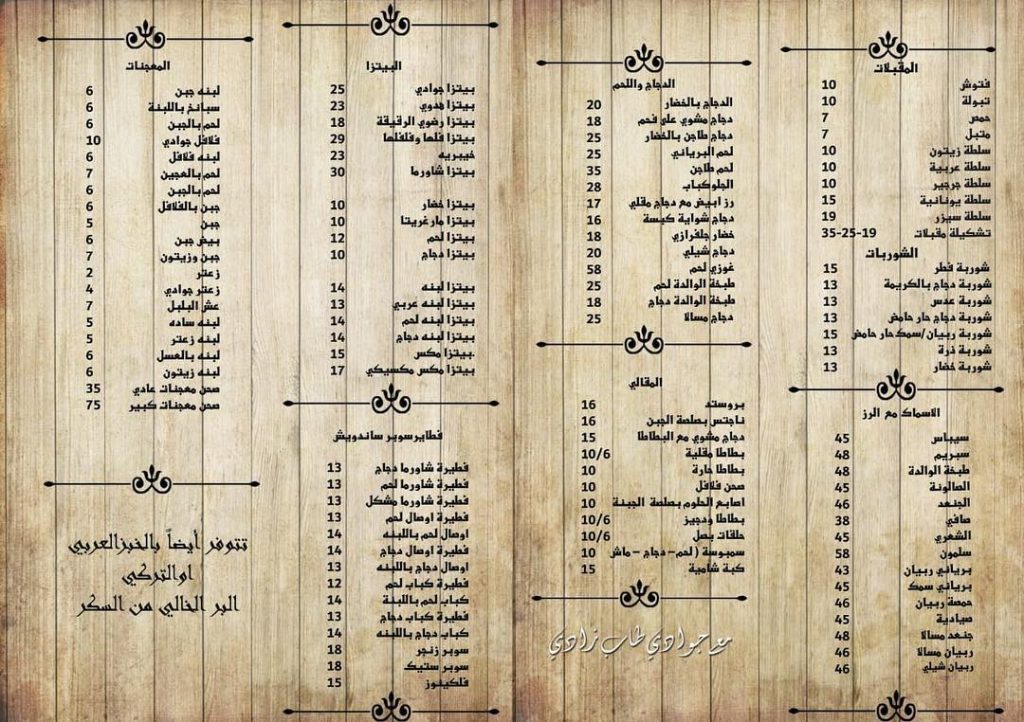 المقبلات
فتوش 10
تبولة 10
حمص 7
متبل 7
سلطة زيتون 10
سلطة عربية 10
سلطة جرجير 10
سلطة يونانية 15
سلطة سيزر 19
تشكيلة مقبلات 19-25-35
الشوربات
شوربة فطر 15
شوربة دجاج بالكريمة 13
شوربة عدس 13
شوربة دجاج حار حامض 13
شوربة ربيان/سمك حار حامض 15
شوربة ذرة 13
شوربة خضار 13
الاسماك مع الرز
سيباس 45
سبريم 48
طبخة الوالدة 48
الصالونة 45
الجنعد 46
صافي 38
الشعري 45
سلمون 58
برياني ربيان 43
برياني سمك 45
حمصة ربيان 46
صيادية 45
جنعد مسالا 48
ربيان مسالا 46
ربيان شيلي 46
الدجاج واللحم
الدجاج بالخضار 20
دجاج مشوي على فحم 18
دجاج طاجن بالخضار 25
لحم البرياني 25
لحم طاجن 35
الجلوكباب 28
رز ابيض مع دجاج مقلي 17
دجاج شواية كبسة 16
خضار جلفرازي 18
دجاج شيلي 20
غوزي لحم 58
طبخة الوالدة لحم 25
طبخة الوالدة دجاج 18
دجاج مسالا 25
المقالي
بروسته 16
ناجتس بصلصة الجبن 16
دجاج مشوي مع البطاطا 15
بطاطا مقلية 10/6
بطاطا حارة 10
صحن فلافل 10
اصابع الحلوم بصلصة الجبنة 10
بطاطا ودجيز 10/6
حلقات بصل 10/6
سمبوسة (لحم- دجاج - ماش 10
كبة شامية 15
مع جوادي طاب زادي
البيتزا
بيتزا جوادي 25
بيتزا هدوي 23
بيتزا رضوي الرقيقة 18
بيتزا فلها وفلفلها 29
خيبريه 23
بيتزا شاورما 30
بيتزا خضار 10
بيتزا مارغريتا 10
بيتزا لحم 12
بيتزا دجاج 10
بيتزا لبنه 14
بيتزا لبنه عربي 13
بيتزا لبنه لحم 14
بيتزا لبنه دجاج 14
بيتزا مكس. 15
بيتزا مكس مكسيكي 17
فطاير سوبر ساندويش
فطيرة شاورما دجاج 13
فطيرة شاورما لحم 13
فطيرة شاورما مشكل 13
فطيرة اوصال لحم 13
اوصال لحم باللبنه 14
فطيرة اوصال دجاج 14
اوصال دجاج باللبنه 13
فطيرة كباب لحم 12
كباب لحم باللبنة 14
فطيرة كباب دجاج 13
كباب دجاج باللبنه 14
سوبر زنجر 18
سوبر ستيك 18
فلكينوز 15
المعجنات
لبنه جبن 6
سبانخ باللبنة 6
لحم بالجبن 6
فلافل جوادي 10
لبنه فلافل 6
لحم بالعجين 7
لحم بالجبن 6
جبن بالفلافل 6
جبن 5
بيض جبن 6
جبن وزيتون 7
زعتر 2
زعتر جوادي 4
عش البلبل 7
لبنه ساده 5
لبنه زعتر 5
لبنه بالعسل 6
لبنه زيتون 6
صحن معجنات عادي 35
صحن معجنات كبير 75
تتوفر أيضاً بالخبز العربي
او التركي
البر الخالي من السكر